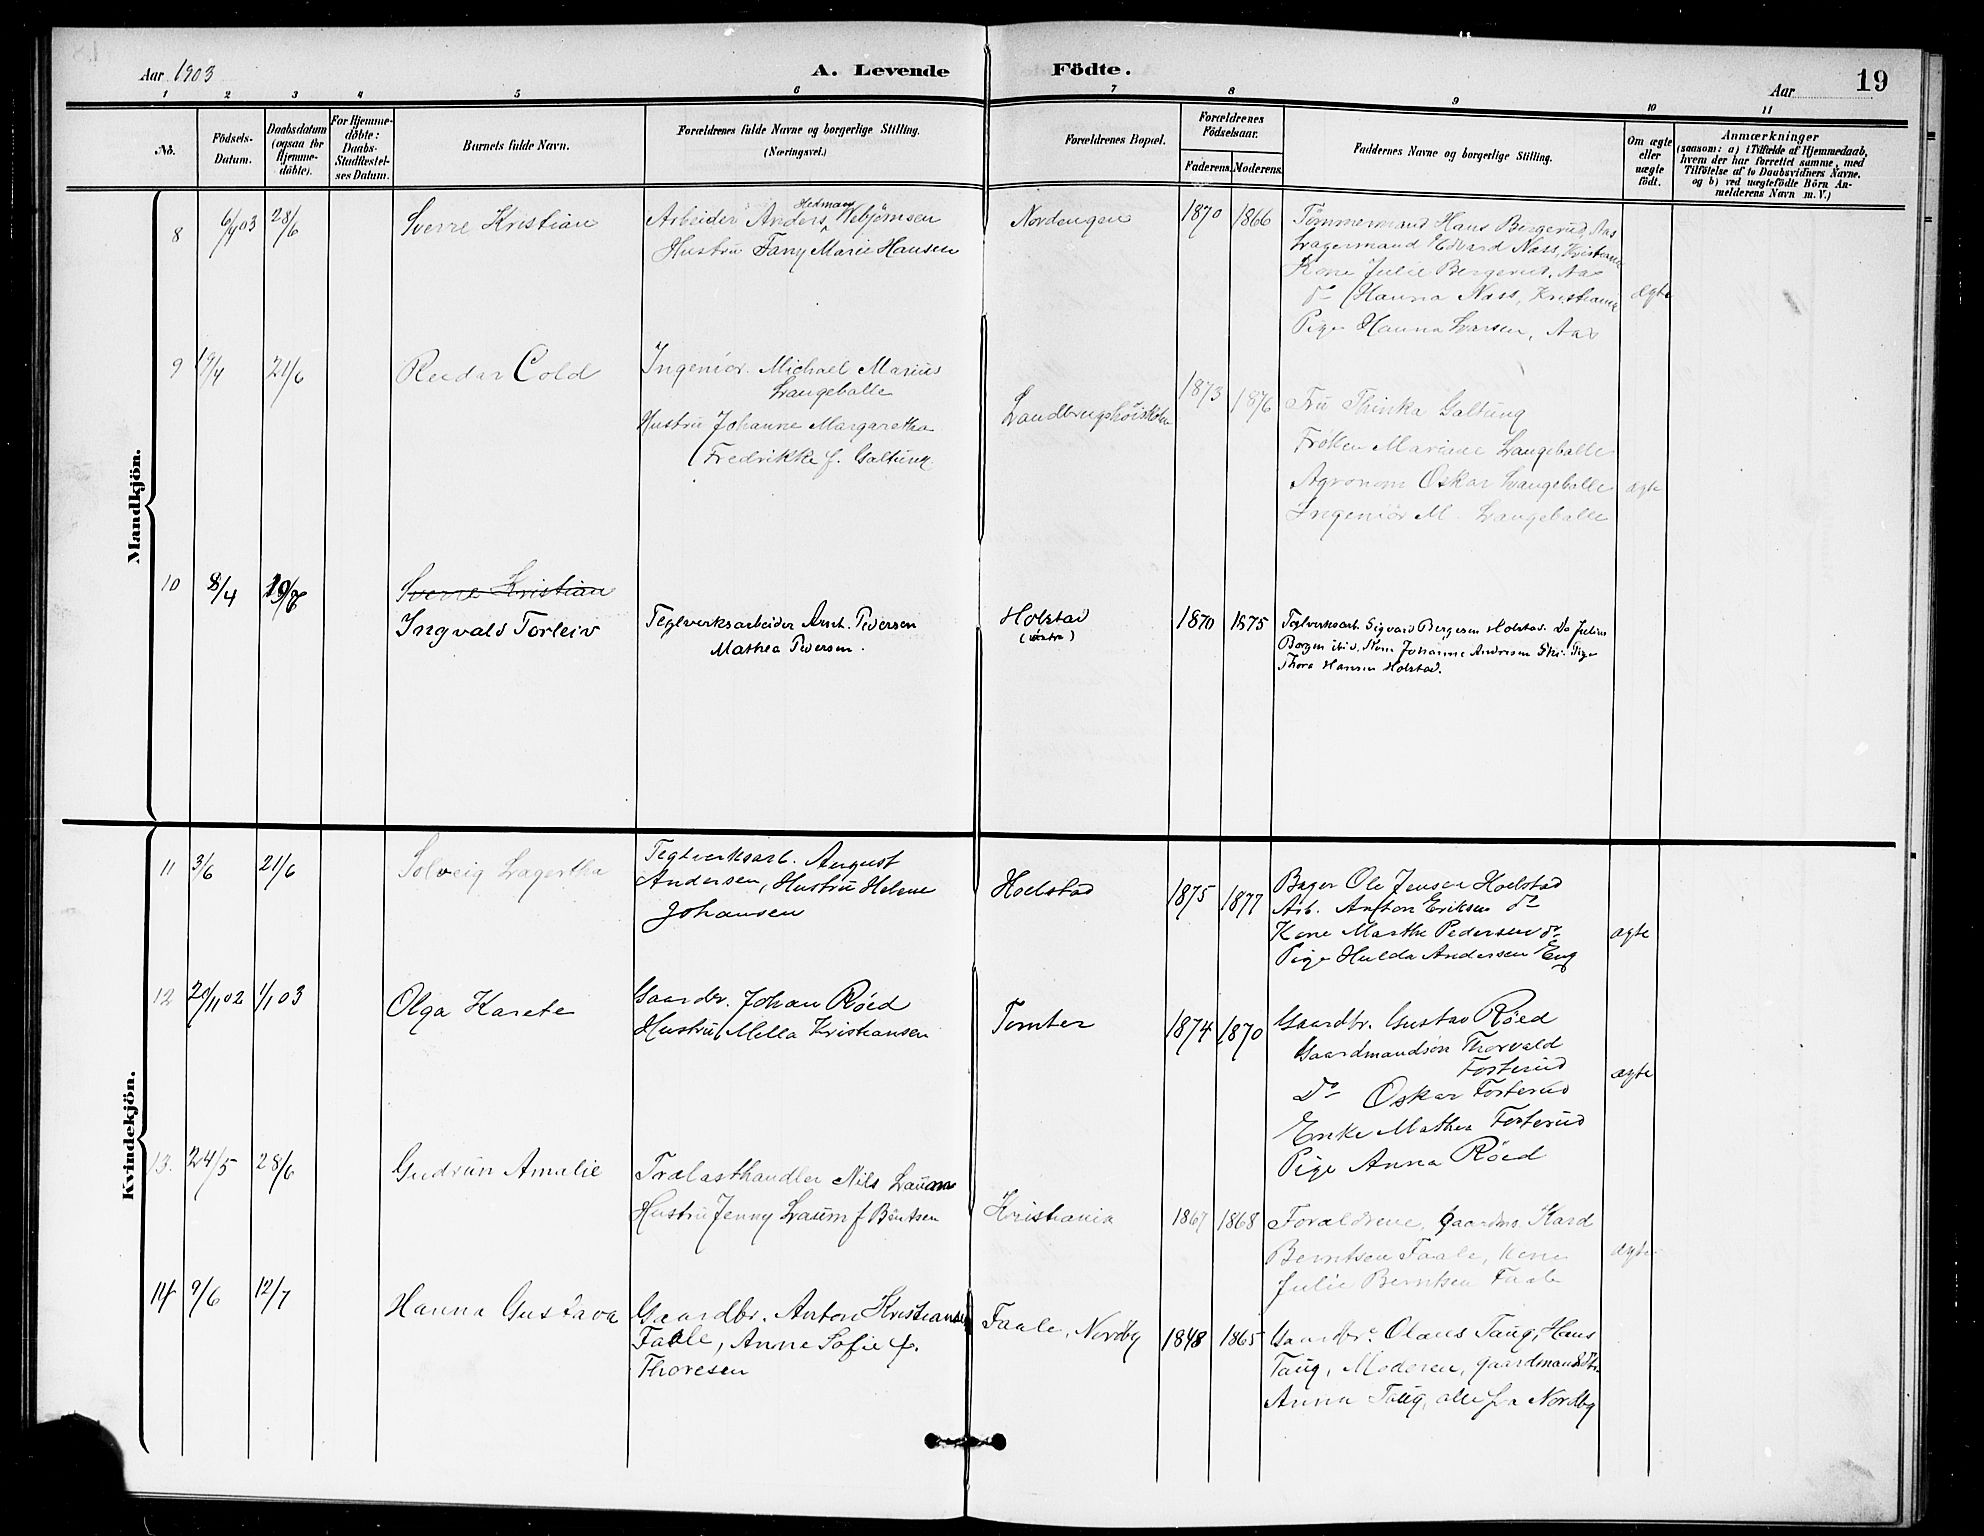 Aar 1903
A. Levende Födte.
Aar
19
1 2 3 4 5 6 7 8 9 10 11
No.
Födsels-
Datum.
Daabsdatum
(ogsaa for
Hjemme-
döbte).
For Hjemme-
döbte:
Daabs-
Stadfæstel-
ses Datum.
Barnets fulde Navn.
Forældrenes fulde Navne og borgerlige Stilling.
(Næringsvei.)
Forældrenes Bopæl.
Forældrenes
Födselsaar.
Faderens.
Moderens.
Faddernes Navne og borgerlige Stilling.
Om ægte
eller
uægte
födt.
Anmærkninger
(saasom: a) i Tilfælde af Hjemmedaab,
hvem der har forrettet samme, med
Tilföielse af to Daabsvidners Navne.
og b) ved uægtefödte Börn An-
melderens Navn m. V.)
Mandkjön.
8
6/4 03
28/6
Sverre Kristian
Hedman
Arbeider Anders Vebjørnsen
Hustru Fany Marie Hansen
Nordengen
1870
1866
Tømmermand Hans Bergerud, Aas
Lagermand Edvard Næss, Kristiania
Kone Julie Bergerud, Aas
do Hanna Næss, Kristiania
Pige Hanna Larsen, Aas
ægte
9
19/4
21/6
Reidar Cold
Ingeniør Michael Marius
Langeballe
Hustru Johanne Margaretha
Fredrikke f. Galtung
Landbrugshøiskolen
1873
1876
Fru Thinka Galtung
Frøken Mariane Langeballe
Agronom Oskar Langeballe
Ingeniør M. Langeballe
ægte
10
8/4
Sverre Kristian
Ingvald Torleiv
Teglverksarbeider Anch. Pedersen
Mathea Pedersen.
Holstad
(søndre)
1870
1875
Teglverksarb. Sigvard Bergersen Holstad. Do Julius
Borgen ibid, Kone Johanne Andresen Ski. Pige
Thora Hansen Holstad.
Kvindekjön.
11
3/6
21/6
Solveig Lagertha
Teglverksarb. August
Andersen, Hustru Helene
Johansen
Holstad
1875
1877
Bager Ole Jensen Holstad
Arb. Anton Eriksen do
Kone Marthe Pedersen do
Pige Hulda Andersen Eng
ægte
12
20/11 02
1/1 03
Olga Karete
Gaardbr. Johan Røed
Hustru Mella Kristiansen
Tomter
1874
1870
Gaardbr. Gustav Røed
Gaardmandsøn Thorvald
Fosterud
Do Oskar Fosterud
Enke Mathea Fosterud
Pige Anna Røed
ægte
13.
24/5
28/6
Gudrun Amalie
Trælasthandler Nils Laum
Hustru Jenny Laum f Berntsen
Kristiania
1867
1868
Forældrene, Gaardm. Kard
Berntsen Faale, Kone
Julie Berntsen Faale
ægte
14
9/6
12/7
Hanna Gustava
Gaardbr. Anton Kristiansen
Faale, Anne Sofie f.
Thoresen
Faale, Nordby
1848
1865
Gaardbr. Olaus Taug, Hans
Taug, Moderen, gaardmandsdtr.
Anna Taug, alle fra Nordby